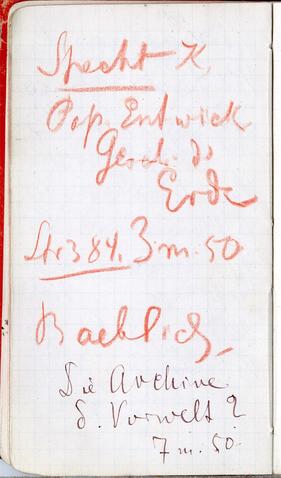 Specht K,
Pop. Entwick
Gesch. d.
Erde
Str 384. 3 m. 50
Die Archive
d. Vorwelt?
7 m. 50